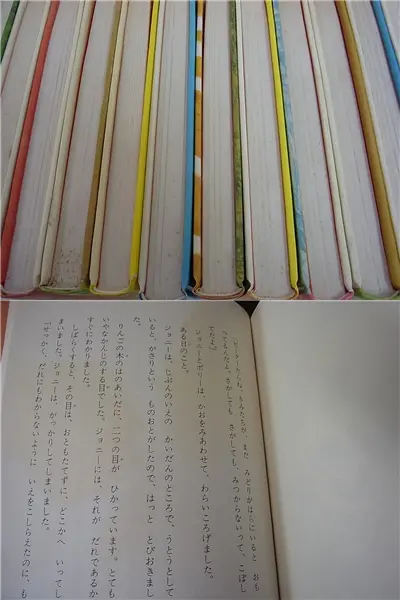 「ピーターたらね、きみたちが、まだ みどりがはらにいると おも
ってもんだよ。さがしても さがしても、みつからないって、こぼし
てたよ。」
ジョニーとポリーは、かおをみあわせて、わらいころげました。
ある日のこと。
ジョニーは、じぶんのいえの かいだんのところで、うとうとして
いると、がさりという ものおとがしたので、はっと とびおきまし
た。
りんごの木のはのあいだに、二つの目が ひかっています。とても
いやなかんじのする目でした。ジョニーには、それが だれであるか
すぐにわかりました。
しばらくすると、その目は、おともたてずに、どこかへ いってし
まいました。ジョニーは、がっかりしてしまいました。
「せっかく、だれにもわからないように いえをこしらえたのに、も